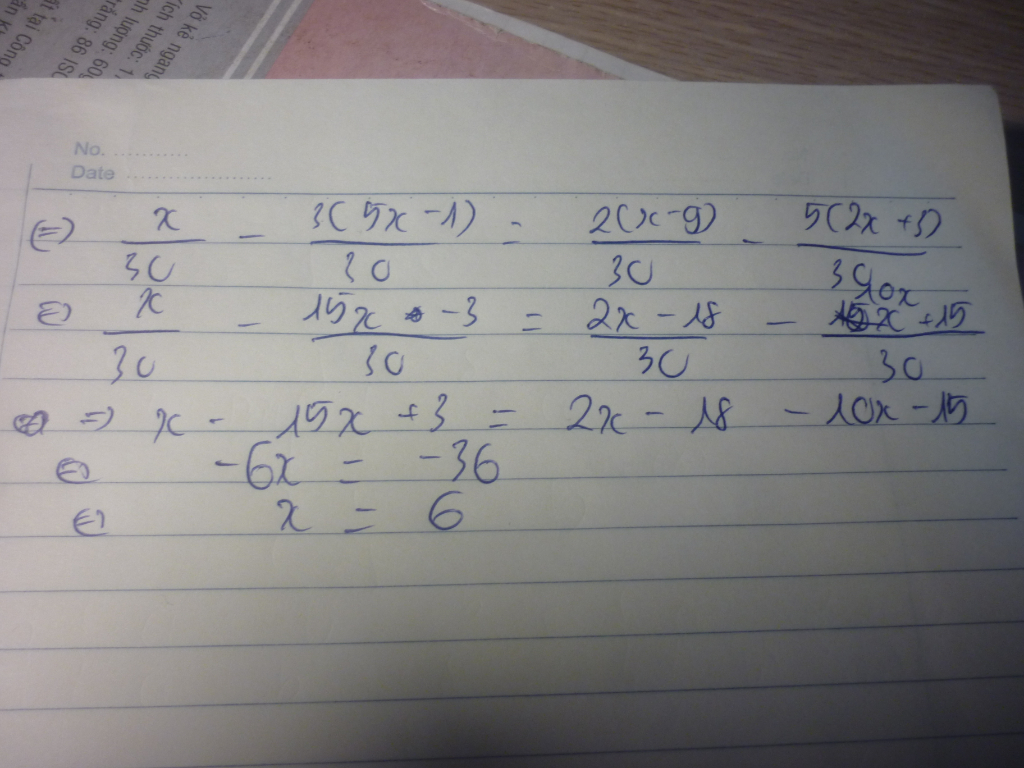 Vở kẻ ngang
ích thước: 1
nh lượng: 60g
trắng: 86 ISO
ất tại Công
No. ...........
Date ......................
⇔) x/30 - 3(5x-1)/30 = 2(x-9)/30 - 5(2x+3)/30
⇔ x/30 - 15x-3/30 = 2x-18/30 - 10x+15/30
=) x - 15x + 3 = 2x - 18 - 10x - 15
⇔ -6x = -36
⇔ x = 6